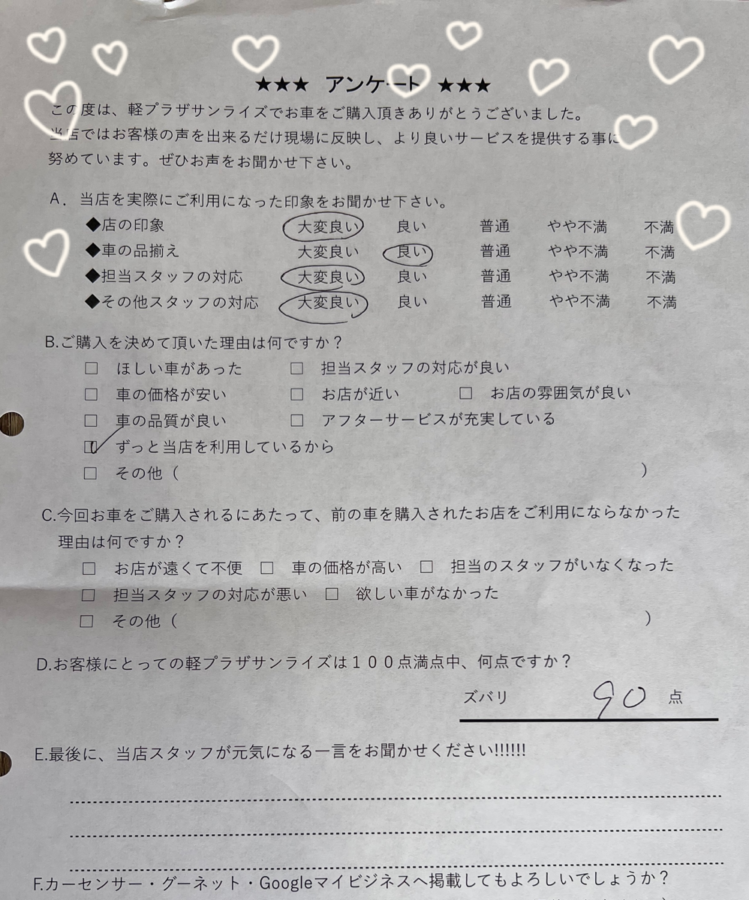 ★★★ アンケート ★★★
この度は、軽プラザサンライズでお車をご購入頂きありがとうございました。
当店ではお客様の声を出来るだけ現場に反映し、より良いサービスを提供する事に
努めています。ぜひお声をお聞かせ下さい。
A．当店を実際にご利用になった印象をお聞かせ下さい。
◆店の印象 大変良い 良い 普通 やや不満 不満
◆車の品揃え 大変良い 良い 普通 やや不満 不満
◆担当スタッフの対応 大変良い 良い 普通 やや不満 不満
◆その他スタッフの対応 大変良い 良い 普通 やや不満 不満
B.ご購入を決めて頂いた理由は何ですか？
□ ほしい車があった □ 担当スタッフの対応が良い
□ 車の価格が安い □ お店が近い □ お店の雰囲気が良い
□ 車の品質が良い □ アフターサービスが充実している
☑ ずっと当店を利用しているから
□ その他（ ）
C.今回お車をご購入されるにあたって、前の車を購入されたお店をご利用にならなかった
理由は何ですか？
□ お店が遠くて不便 □ 車の価格が高い □ 担当のスタッフがいなくなった
□ 担当スタッフの対応が悪い □ 欲しい車がなかった
□ その他（ ）
D.お客様にとっての軽プラザサンライズは１００点満点中、何点ですか？
ズバリ 90 点
E.最後に、当店スタッフが元気になる一言をお聞かせください!!!!!!
F.カーセンサー・グーネット・Googleマイビジネスへ掲載してもよろしいでしょうか？